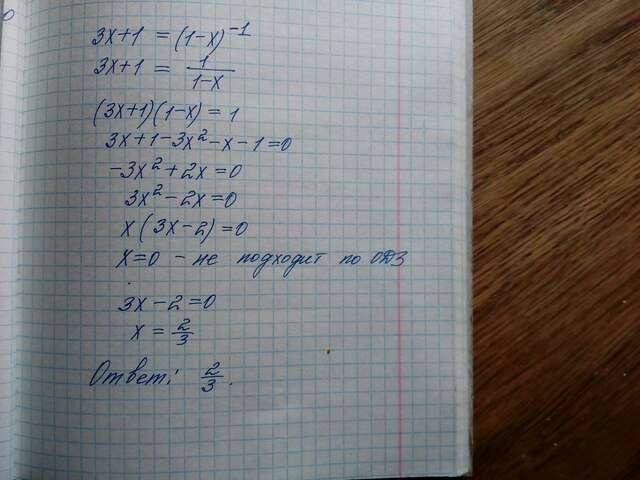 3x+1 = (1-x)⁻¹
3x+1 = 1/(1-x)
(3x+1)(1-x) = 1
3x+1-3x²-x-1=0
-3x²+2x=0
3x²-2x=0
x(3x-2)=0
x=0 - не подходит по ОДЗ
3x-2=0
x = 2/3
Ответ: 2/3.